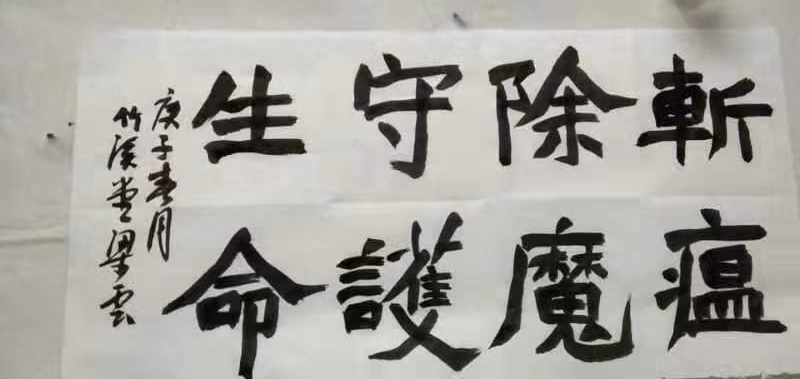 斬瘟
除魔
守護
生命
庚子春月
竹溪堂梁雲